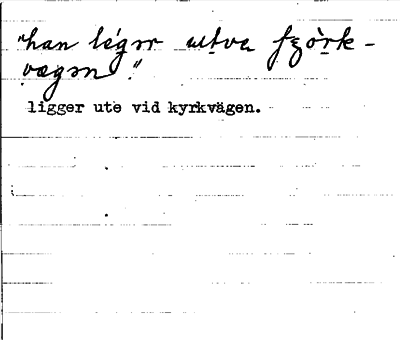 "han légər utva fzòrk-
vægən."
ligger ute vid kyrkvägen.